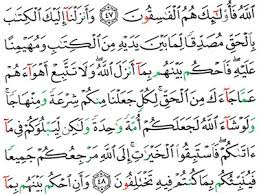 ٱللَّهُ فَأُو۟لَٰٓئِكَ هُمُ ٱلْفَٰسِقُونَ ٤٧ وَأَنزَلْنَآ إِلَيْكَ ٱلْكِتَٰبَ
بِٱلْحَقِّ مُصَدِّقًا لِّمَا بَيْنَ يَدَيْهِ مِنَ ٱلْكِتَٰبِ وَمُهَيْمِنًا
عَلَيْهِ ۖ فَٱحْكُم بَيْنَهُم بِمَآ أَنزَلَ ٱللَّهُ ۖ وَلَا تَتَّبِعْ أَهْوَآءَهُمْ
عَمَّا جَآءَكَ مِنَ ٱلْحَقِّ ۚ لِكُلٍّ جَعَلْنَا مِنكُمْ شِرْعَةً وَمِنْهَاجًا ۚ
وَلَوْ شَآءَ ٱللَّهُ لَجَعَلَكُمْ أُمَّةً وَٰحِدَةً وَلَٰكِن لِّيَبْلُوَكُمْ فِى مَآ
ءَاتَىٰكُمْ ۖ فَٱسْتَبِقُوا۟ ٱلْخَيْرَٰتِ ۚ إِلَى ٱللَّهِ مَرْجِعُكُمْ جَمِيعًا
فَيُنَبِّئُكُم بِمَا كُنتُمْ فِيهِ تَخْتَلِفُونَ ٤٨ وَأَنِ ٱحْكُم بَيْنَهُم بِمَآ